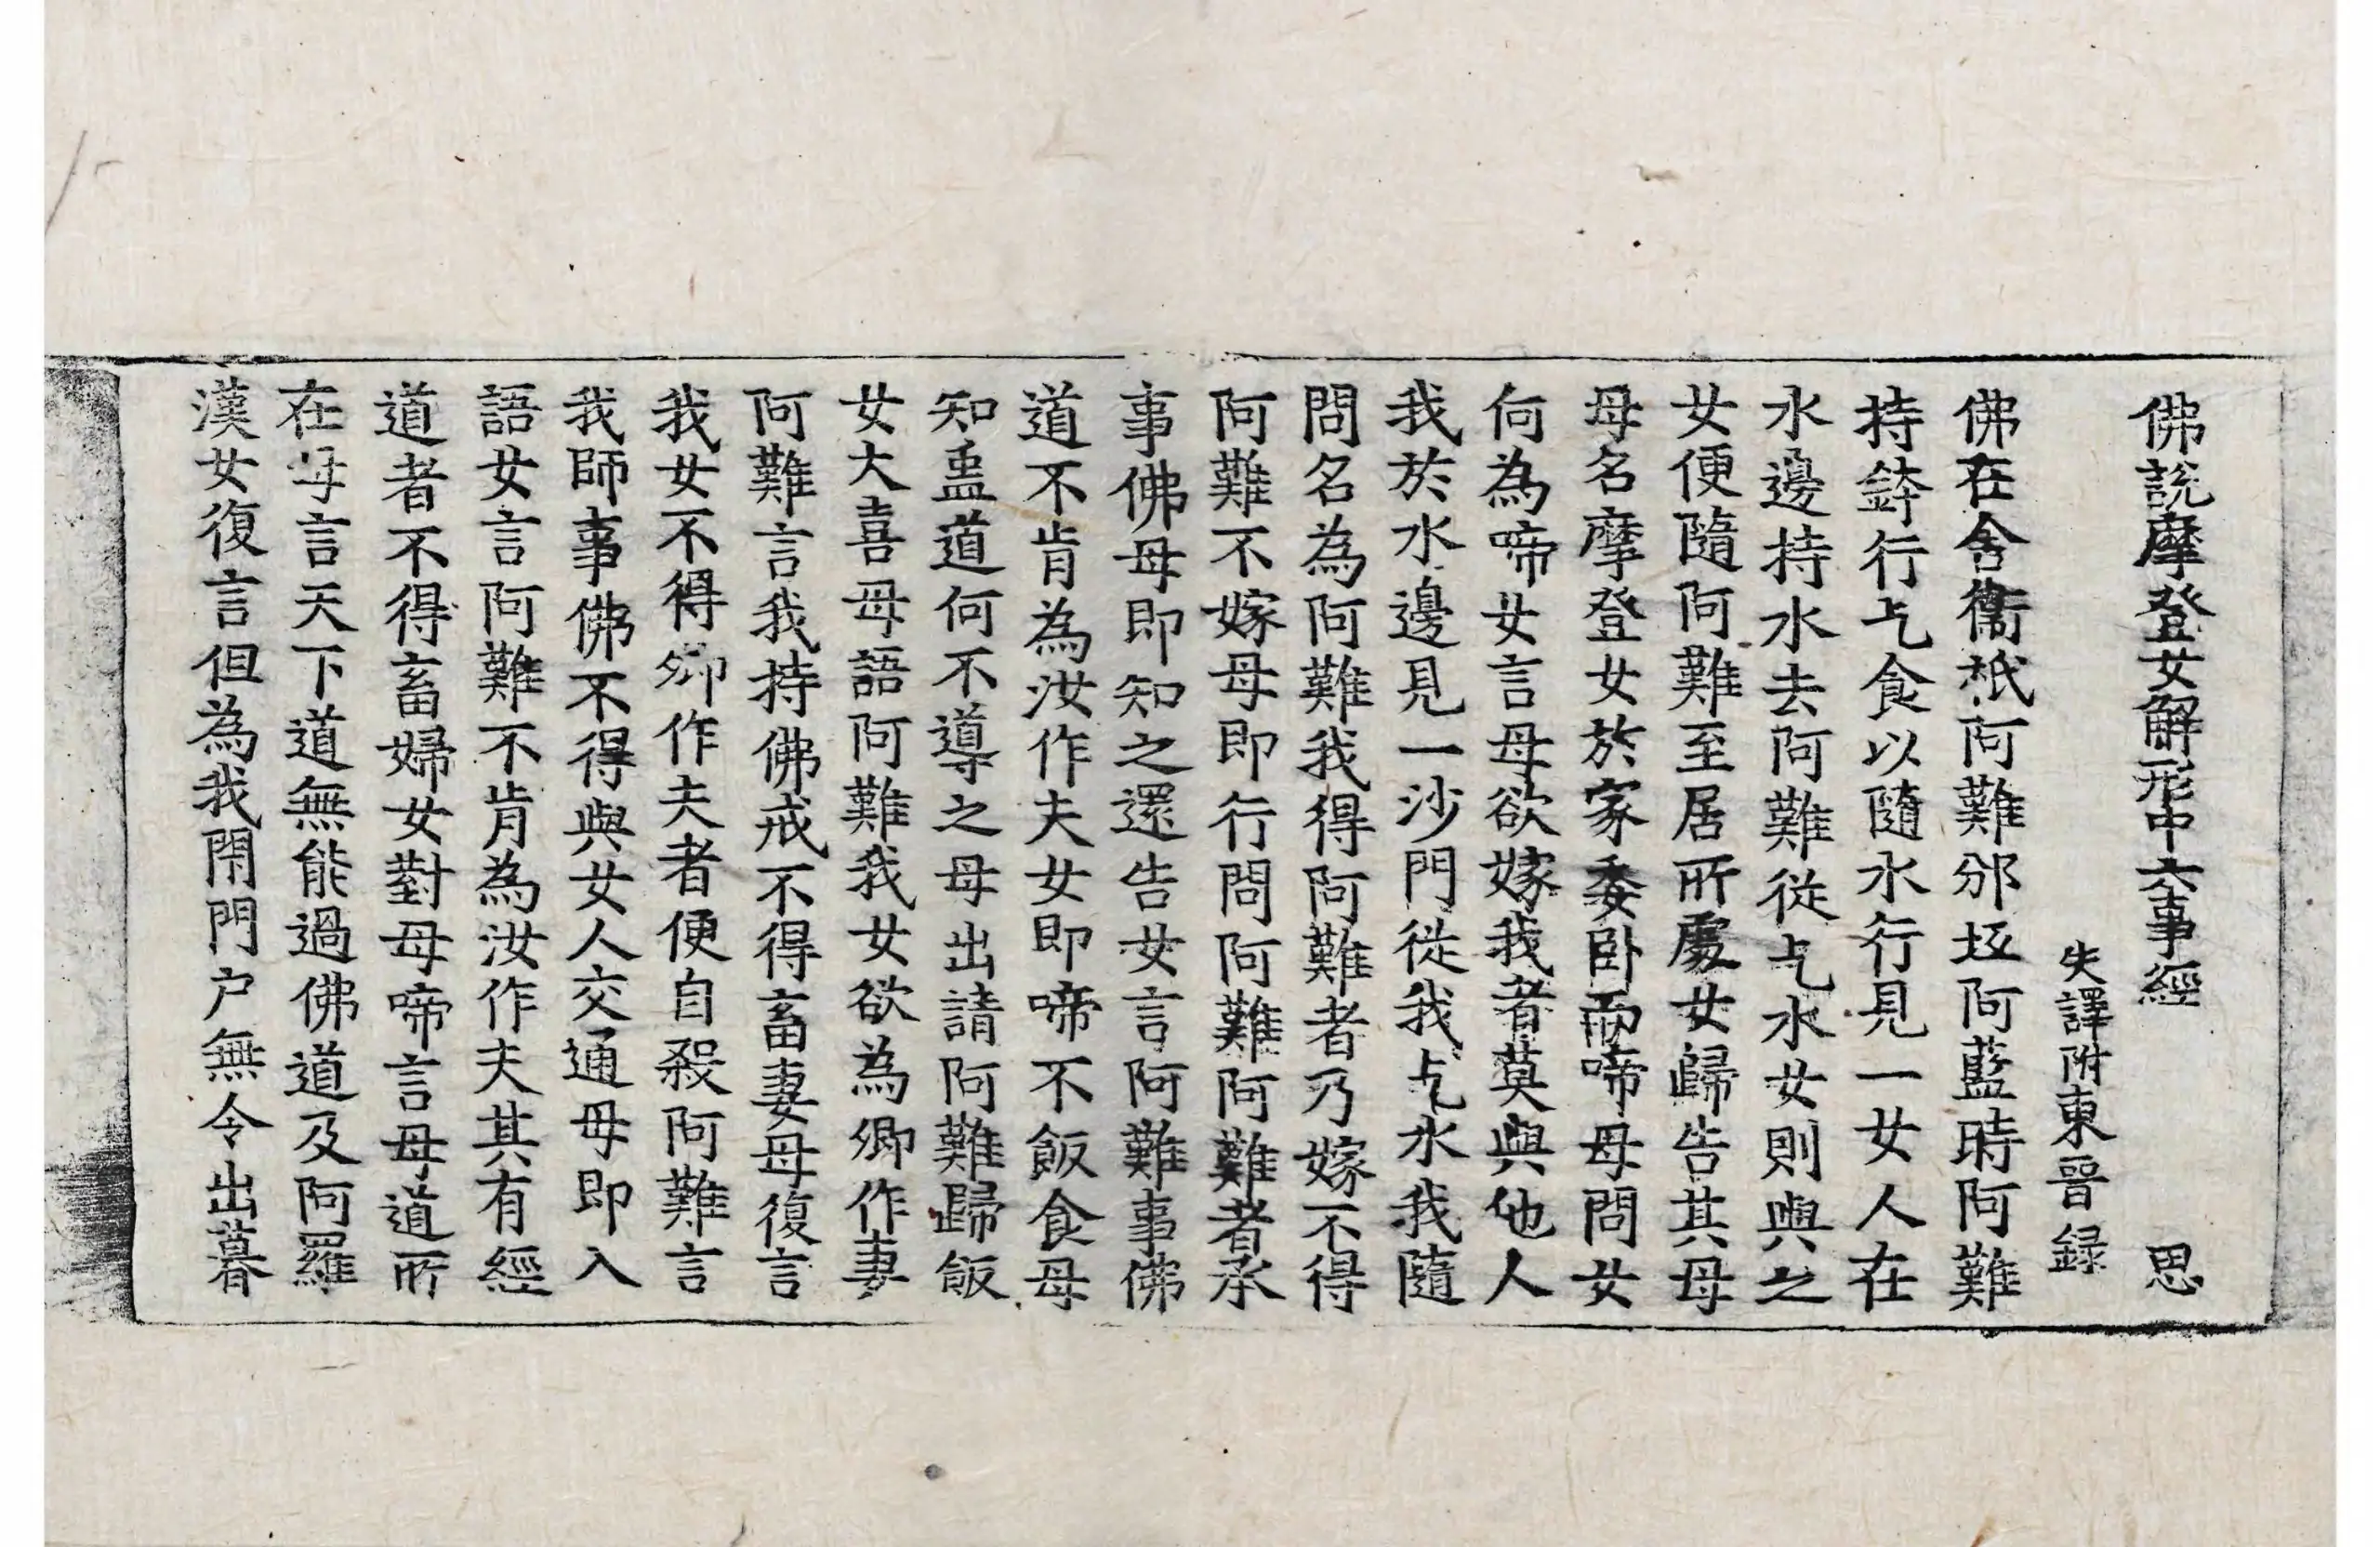 佛說摩登女解形中六事經 思
失譯附東晉録
佛在舍衞祇阿難邠坻阿藍時阿難
持鉢行乞食以隨水行見一女人在
水邊持水去阿難從乞水女則與之
女便隨阿難至居所處女歸告其母
母名摩登女於家委卧而啼母問女
何為啼女言母欲嫁我者莫與他人
我於水邊見一沙門從我乞水我隨
問名為阿難我得阿難者乃嫁不得
阿難不嫁母即行問阿難阿難者承
事佛母即知之還告女言阿難事佛
道不肯為汝作夫女即啼不飯食母
知蛊道何不導之母出請阿難歸飯
女大喜母語阿難我女欲為卿作妻
阿難言我持佛戒不得畜妻母復言
我女不得卿作夫者便自殺阿難言
我師事佛不得與女人交通母即入
語女言阿難不肯為汝作夫其有經
道者不得畜婦女對母啼言母道所
在母言天下道無能過佛道及阿羅
漢女復言但為我閇門户無令出暮